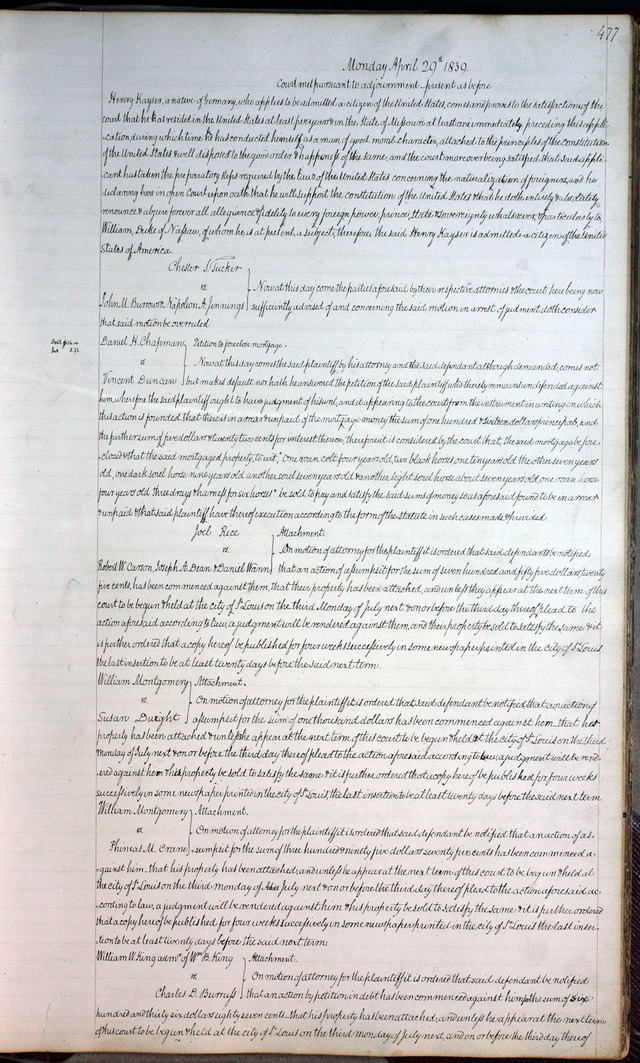 477
Monday April 29th 1839
Court met pursuant to adjournment - present as before
Henry Kayser, a native of Germany, who applies to be admitted a citizen of the United States, comes and proves to the satisfaction of the
court that he has resided in the United States at least five years & in the State of Missouri at least one immediately preceding this appli-
cation, during which time he has conducted himself as a man of good moral character, attached to the principles of the constitution
of the United States & well disposed to the good order & happiness of the same, and the court moreover being satisfied that said appli-
cant has taken the preparatory steps required by the laws of the United States concerning the naturalization of foreigners, and he
declaring here in open Court upon oath that he will support the constitution of the United States & that he doth entirely & absolutely
renounce & abjure forever all allegiance & fidelity to every foreign power, prince, State & Sovereignty whatsoever, & particularly to
William, Duke of Nassau, of whom he is at present a subject, therefore the said Henry Kayser is admitted a citizen of the United
States of America.
Chester S. Tucker
vs. Now at this day come the parties aforesaid by their respective attornies & the court here being now
John M. Burrows, Napoleon A. Jennings sufficiently advised of and concerning the said motion in arrest of judgment doth consider
that said motion be overruled.
Daniel H. Chapman Petition to foreclose mortgage.
vs. Now at this day comes the said plaintiff by his attorney and the said defendant although demanded, comes not
Vincent Duncan but makes default nor hath he answered the petition of the said plaintiff who thereby remains undefended against
him, wherefore the said plaintiff ought to have judgment of his writ, and it appearing to the court from the instrument in writing on which
this action is founded that there is in arrear & unpaid of the mortgage money the sum of one hundred & sixteen dollars principal, and
the further sum of five dollars & twenty two cents for interest thereon, therefore it is considered by the court that, the said mortgage be fore-
closed & that the said mortgaged property, to wit, "One roan colt four years old, two black horses, one ten years old the other seven years
old, one dark sorrel horse nine years old another sorrel seven years old & another light sorrel horse about seven years old, one roan horse
four years old, three drays & harness for six horses" be sold to pay and satisfy the said sums of money so as aforesaid found to be in arrear
& unpaid & that said plaintiff have thereof execution according to the form of the statute in such cases made & provided
Joel Rice Attachment.
vs. On motion of attorney for the plaintiff it is ordered that said defendants be notified
Robert W. Carson, Joseph A. Dean & Daniel Wann that an action of assumpsit for the sum of seven hundred and fifty five dollars, twenty
five cents, has been commenced against them, that their property has been attached, and unless they appear at the next term of this
court to be begun & held at the city of St. Louis on the third Monday of July next & on or before the third day thereof plead to the
action aforesaid according to law, a judgment will be rendered against them, and their property be sold to satisfy the same & it
is further ordered that a copy hereof be published for four weeks successively in some newspaper printed in the city of St. Louis
the last insertion to be at least twenty days before the said next term.
William Montgomery Attachment.
vs. On motion of attorney for the plaintiff it is ordered that said defendant be notified that an action of
Susan Dwight assumpsit for the sum of one thousand dollars has been commenced against him that her
property has been attached & unless he appear at the next term of this court to be begun & held at the city of St. Louis on the third
Monday of July next & on or before the third day thereof plead to the action aforesaid according to law, a judgment will be rend-
ered against him & his property be sold to satisfy the same & it is further ordered that a copy hereof be published for four weeks
successively in some newspaper printed in the city of St. Louis, the last insertion to be at least twenty days before the said next term
William Montgomery Attachment.
vs. On motion of attorney for the plaintiff it is ordered that said defendant be notified that an action of as-
Phineas M. Crane sumpsit for the sum of three hundred & ninety five dollars seventy five cents has been commenced a-
gainst him, that his property has been attached, and unless he appear at the next term of this court to be begun & held at
the city of St. Louis on the third Monday of July next & on or before the third day thereof plead to the action aforesaid ac-
cording to law, a judgment will be rendered against him & his property be sold to satisfy the same & it is further ordered
that a copy hereof be published for four weeks successively in some newspaper printed in the city of St. Louis the last inser-
tion to be at least twenty days before the said next term.
William W. King admr. of Wm. B. King Attachment.
vs. On motion of attorney for the plaintiff it is ordered that said defendant be notified
Charles D. Burruss that an action by petition in debt has been commenced against him for the sum of six
hundred and thirty six dollars eighty seven cents - that his property has been attached, and unless he appear at the next term
of this court to be begun & held at the city of St. Louis on the third monday of July next, and on or before the third day thereof